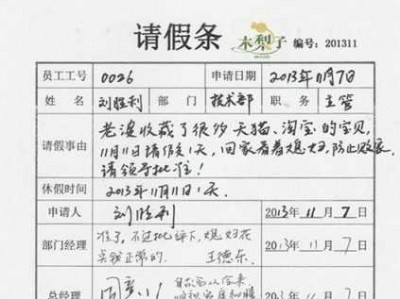 请假条 木梨子 编号：201311
员工工号 0026 申请日期 2013年11月7日
姓 名 刘胜利 部 门 技术部 职 务 主管
请假事由 老婆收藏了很多天猫、淘宝的宝贝，
11月11日请假1天，回家看着媳妇，防止败家，
请领导批准！
休假时间 2013年11月11日1天。
申请人 刘胜利 2013年 11月 7日
部门经理 准了，不过批评下，媳妇花
点钱正常的。 王德东 2013年 11月 7日
总经理 2013年 11月 7日